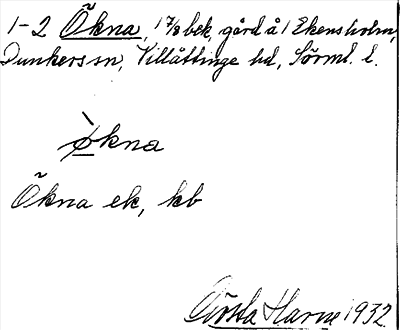 1-2 Ökna, 1 7/8 bek, gård å/ Ekensholm,
Dunkers sn, Villåttinge hd, Sörml. l.
Ø̀kna
Ökna ek, kb
Gösta Harne 1932